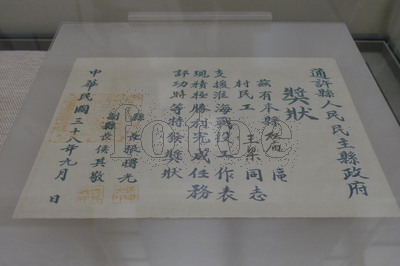 通許縣人民民主縣政府
獎狀
茲有本縣 區
村民工 王梁 同志
支援淮海戰役工作表
現積極勝利完成任務
評功 等特發獎狀
縣長 曙光
副縣長侯其敬
中華民國三十八年九月 日
fotoe